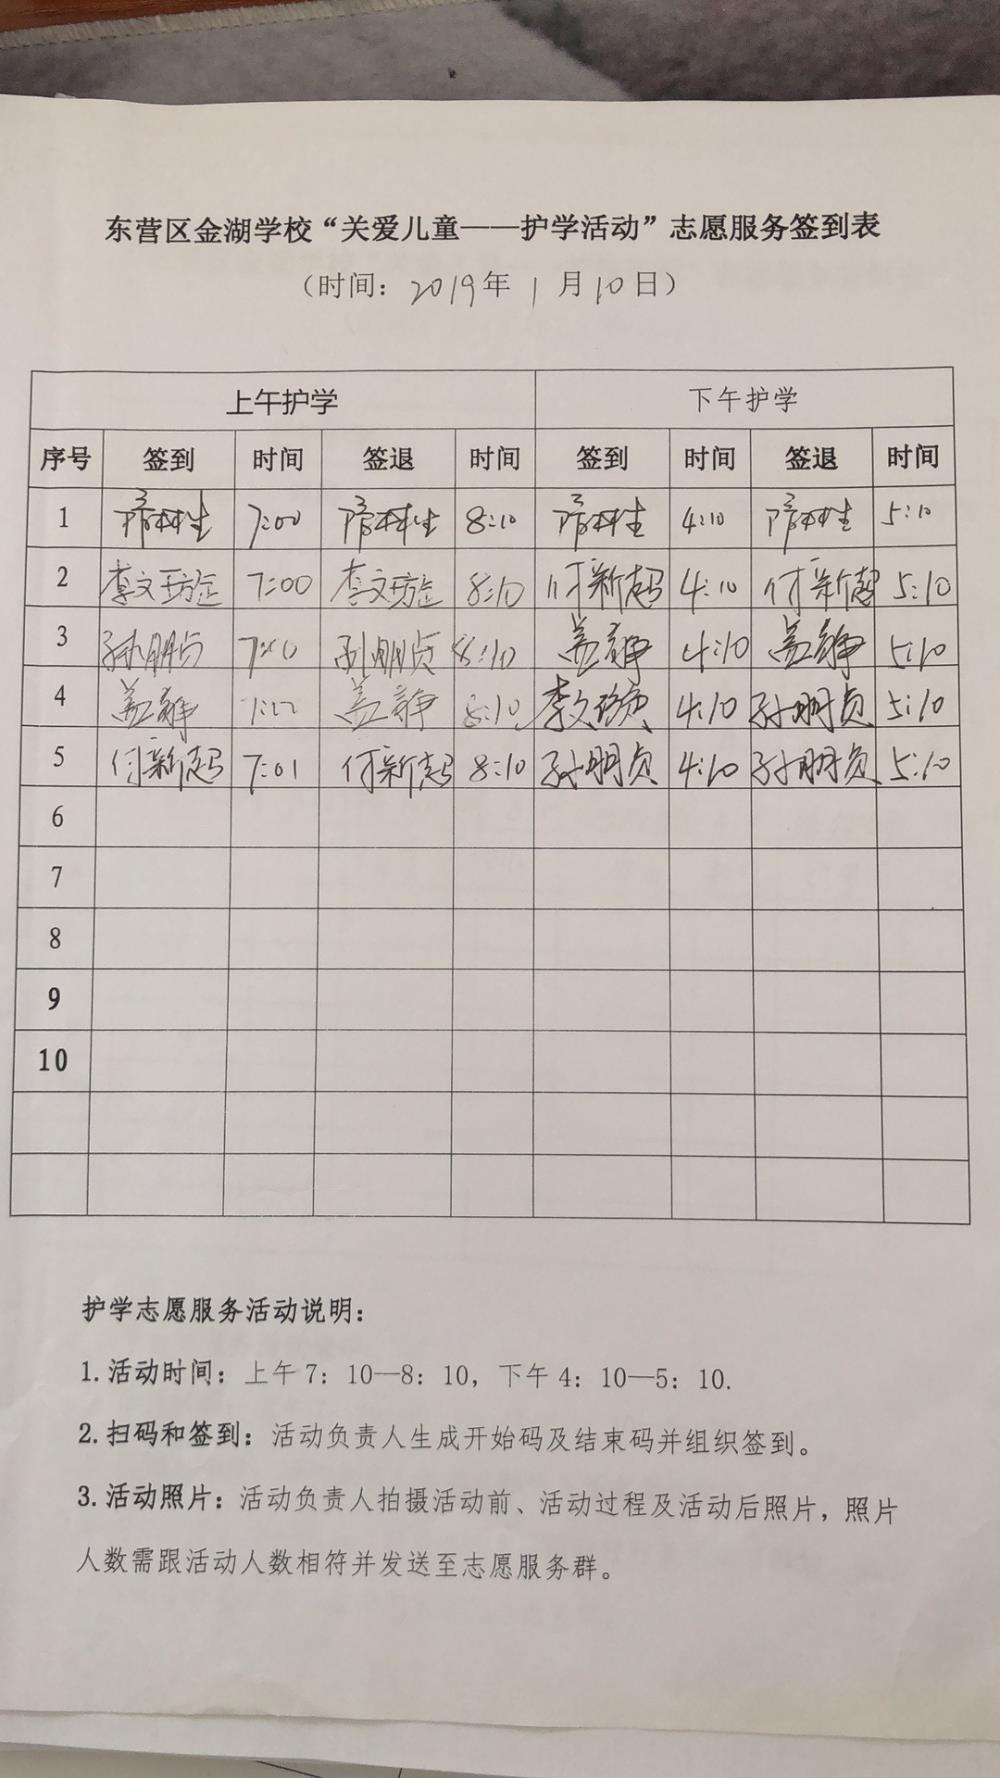 东营区金湖学校“关爱儿童——护学活动”志愿服务签到表
（时间：2019年 1 月 10 日）
上午护学 下午护学
序号 签到 时间 签退 时间 签到 时间 签退 时间
1 7:00 8:10 4:10 5:10
2 7:00 8:10 付新超 4:10 付新超 5:10
3 孙朋贞 孙朋贞 8:10 盖静 4:10 盖静 5:10
4 盖静 盖静 8:10 4:10 孙朋贞 5:10
5 付新超 7:01 付新超 8:10 孙朋贞 4:10 孙朋贞 5:10
6
7
8
9
10
护学志愿服务活动说明：
1.活动时间：上午 7：10—8：10，下午 4：10—5：10.
2.扫码和签到：活动负责人生成开始码及结束码并组织签到。
3.活动照片：活动负责人拍摄活动前、活动过程及活动后照片，照片
人数需跟活动人数相符并发送至志愿服务群。